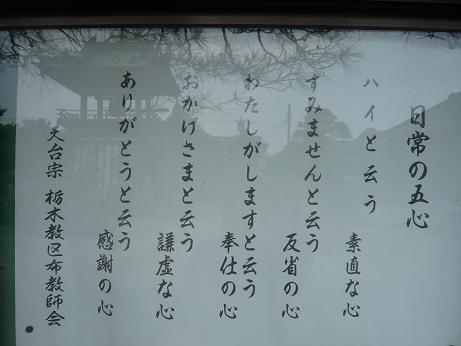 日常の五心
ハイと云う
素直な心
すみませんと云う
反省の心
わたしがしますと云う
奉仕の心
おかげさまと云う
謙虚な心
ありがとうと云う
感謝の心
天台宗 栃木教区布教師会